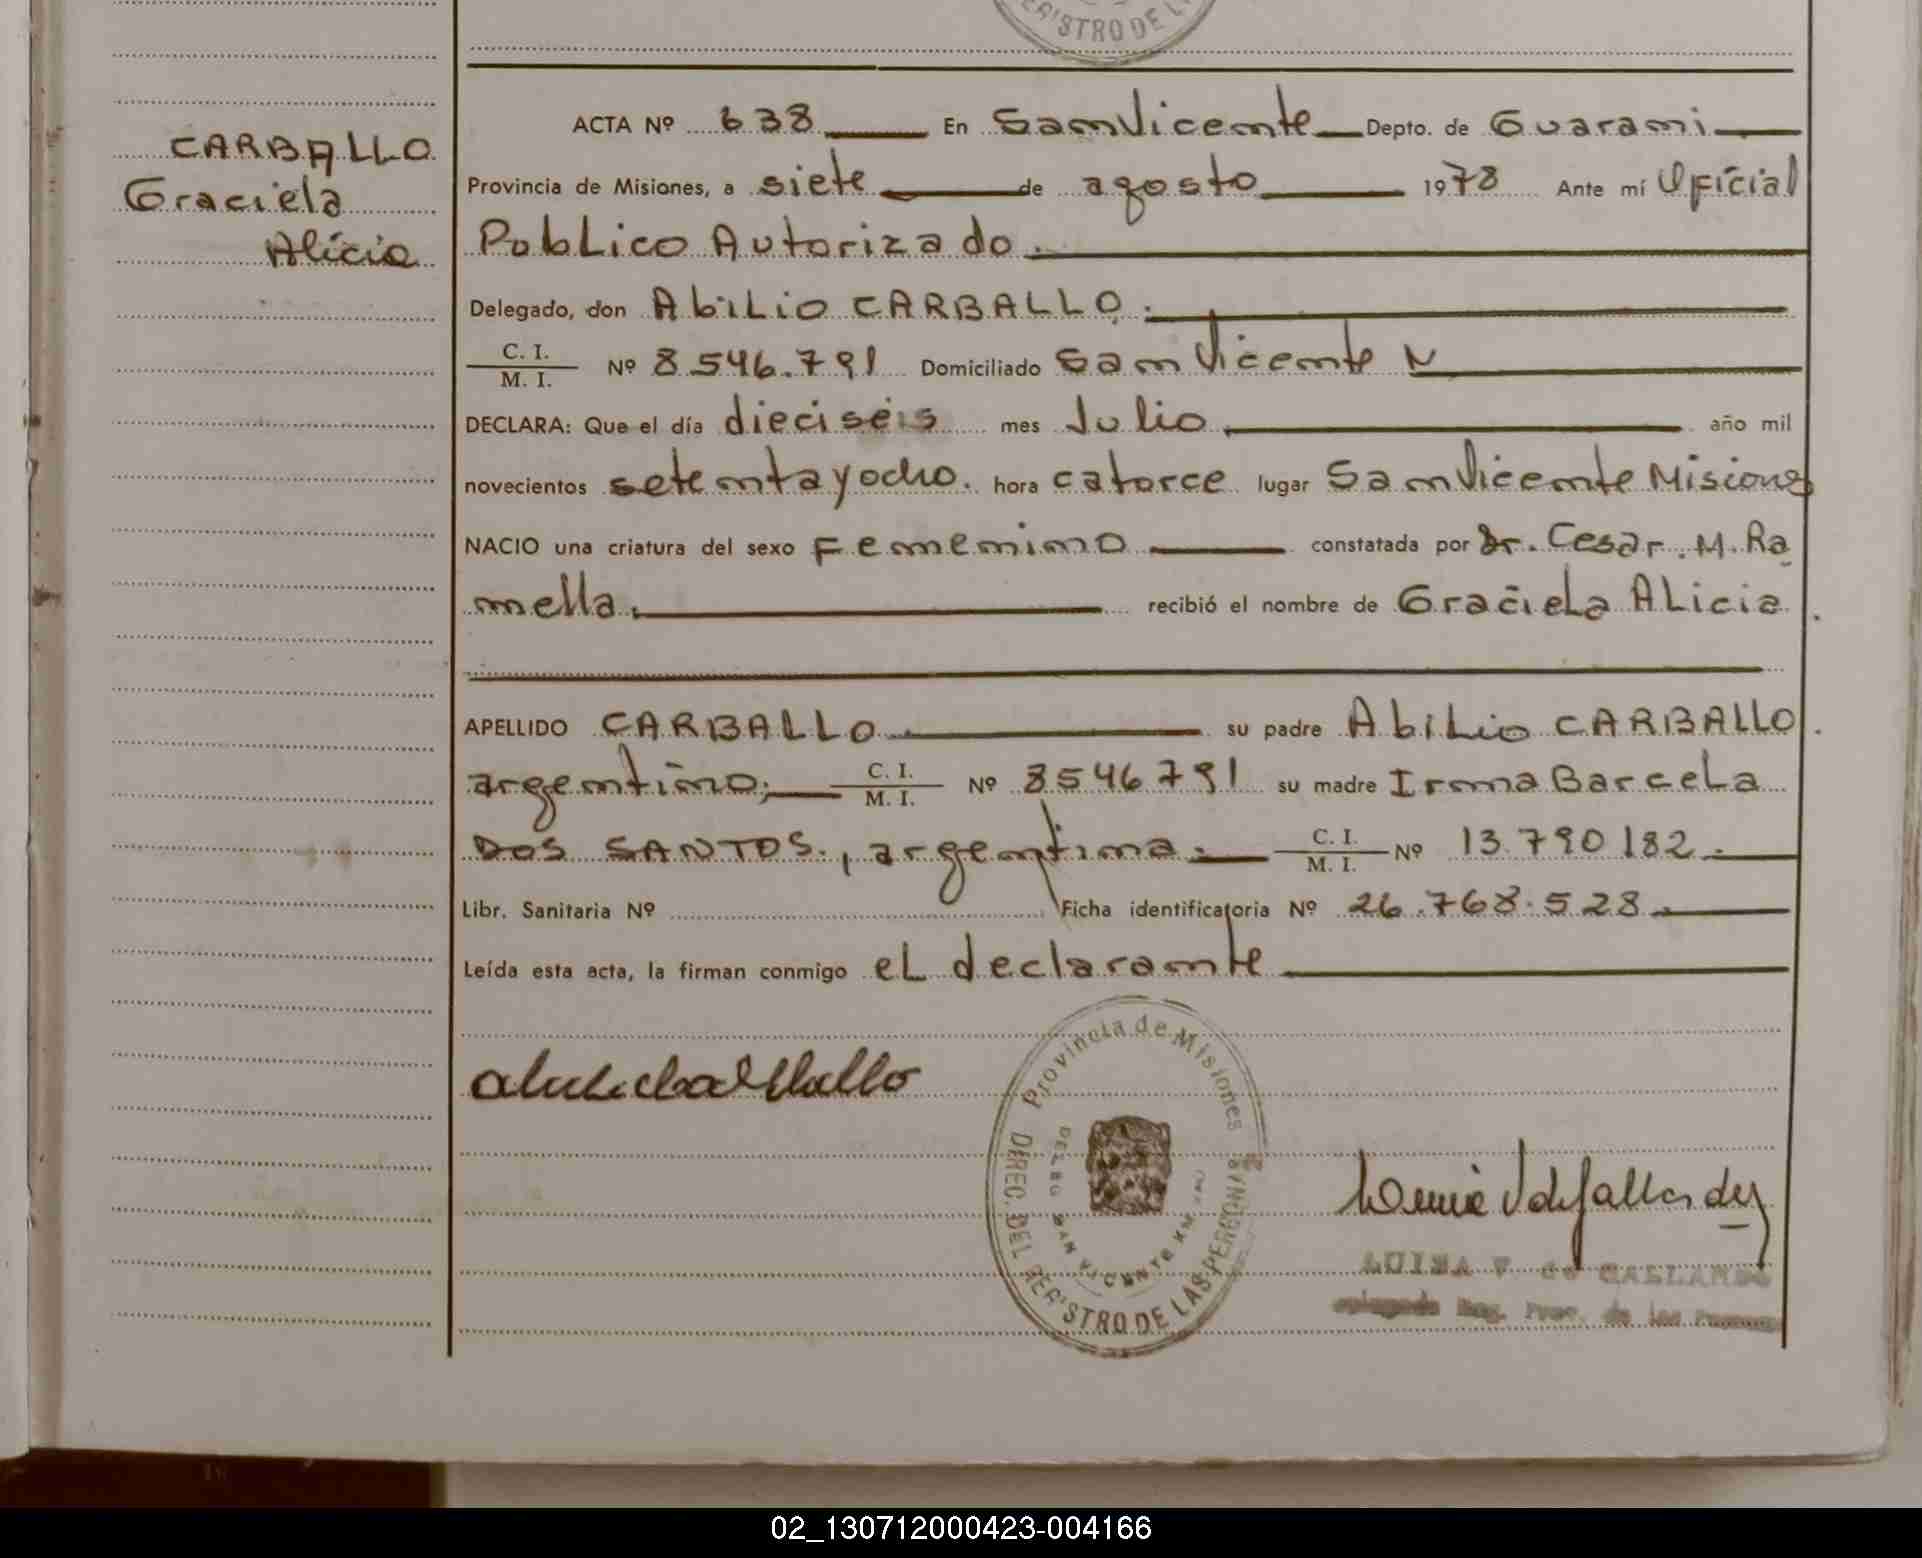 REGISTRO DE L
CARBALLO
Graciela
Alicia
ACTA Nº 638 En San Vicente Depto. de Guarani
Provincia de Misiones, a siete de agosto 1978 Ante mí Oficial
Publico Autorizado.
Delegado, don Abilio CARBALLO.
C. I.
M. I. Nº 8546.791 Domiciliado San Vicente N
DECLARA: Que el día dieciséis mes Julio año mil
novecientos setenta y ocho. hora catorce lugar San Vicente Misiones
NACIO una criatura del sexo Femenino constatada por Dr. Cesar. M. Ra
mella. recibió el nombre de Graciela Alicia.
APELLIDO CARBALLO su padre Abilio CARBALLO.
argentino; C. I.
M. I. Nº 8546791 su madre Irma Barcela
DOS SANTOS., argentina. C. I.
M. I. Nº 13.790182.
Libr. Sanitaria Nº Ficha identificatoria Nº 26.768.528
Leída esta acta, la firman conmigo el declarante
Provincia de Misiones
DIREC. DEL REGISTRO DE LAS PERSONAS
DELEG SAN VICENTE KM
LUISA V de GALLARDO
Reg. Prov. de las Personas
02_130712000423-004166